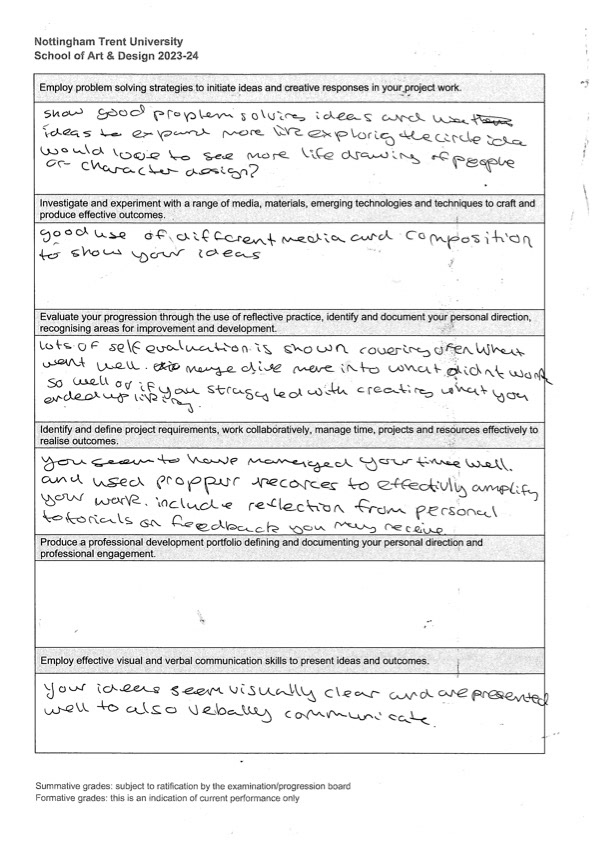 Nottingham Trent University
School of Art & Design 2023-24
Employ problem solving strategies to initiate ideas and creative responses in your project work.
show good problem solving ideas and
ideas to expand more like exploring the circle idea
would love to see more life drawing of people
or character design?
Investigate and experiment with a range of media, materials, emerging technologies and techniques to craft and
produce effective outcomes.
good use of different media and composition
to show your ideas
Evaluate your progression through the use of reflective practice, identify and document your personal direction,
recognising areas for improvement and development.
Lots of self evaluation is shown covering often what
went well. maybe dive more into what didnt work
so well or if you struggled with creating what you
ended up liking.
Identify and define project requirements, work collaboratively, manage time, projects and resources effectively to
realise outcomes.
you seem to have maneged your time well.
and used proppur recorces to effectivly amplify
your work. include reflection from personal
totorials or feedback you may receive
Produce a professional development portfolio defining and documenting your personal direction and
professional engagement.
Employ effective visual and verbal communication skills to present ideas and outcomes.
Your ideas seem visually clear and are presented
well to also verbally communicate.
Summative grades: subject to ratification by the examination/progression board
Formative grades: this is an indication of current performance only